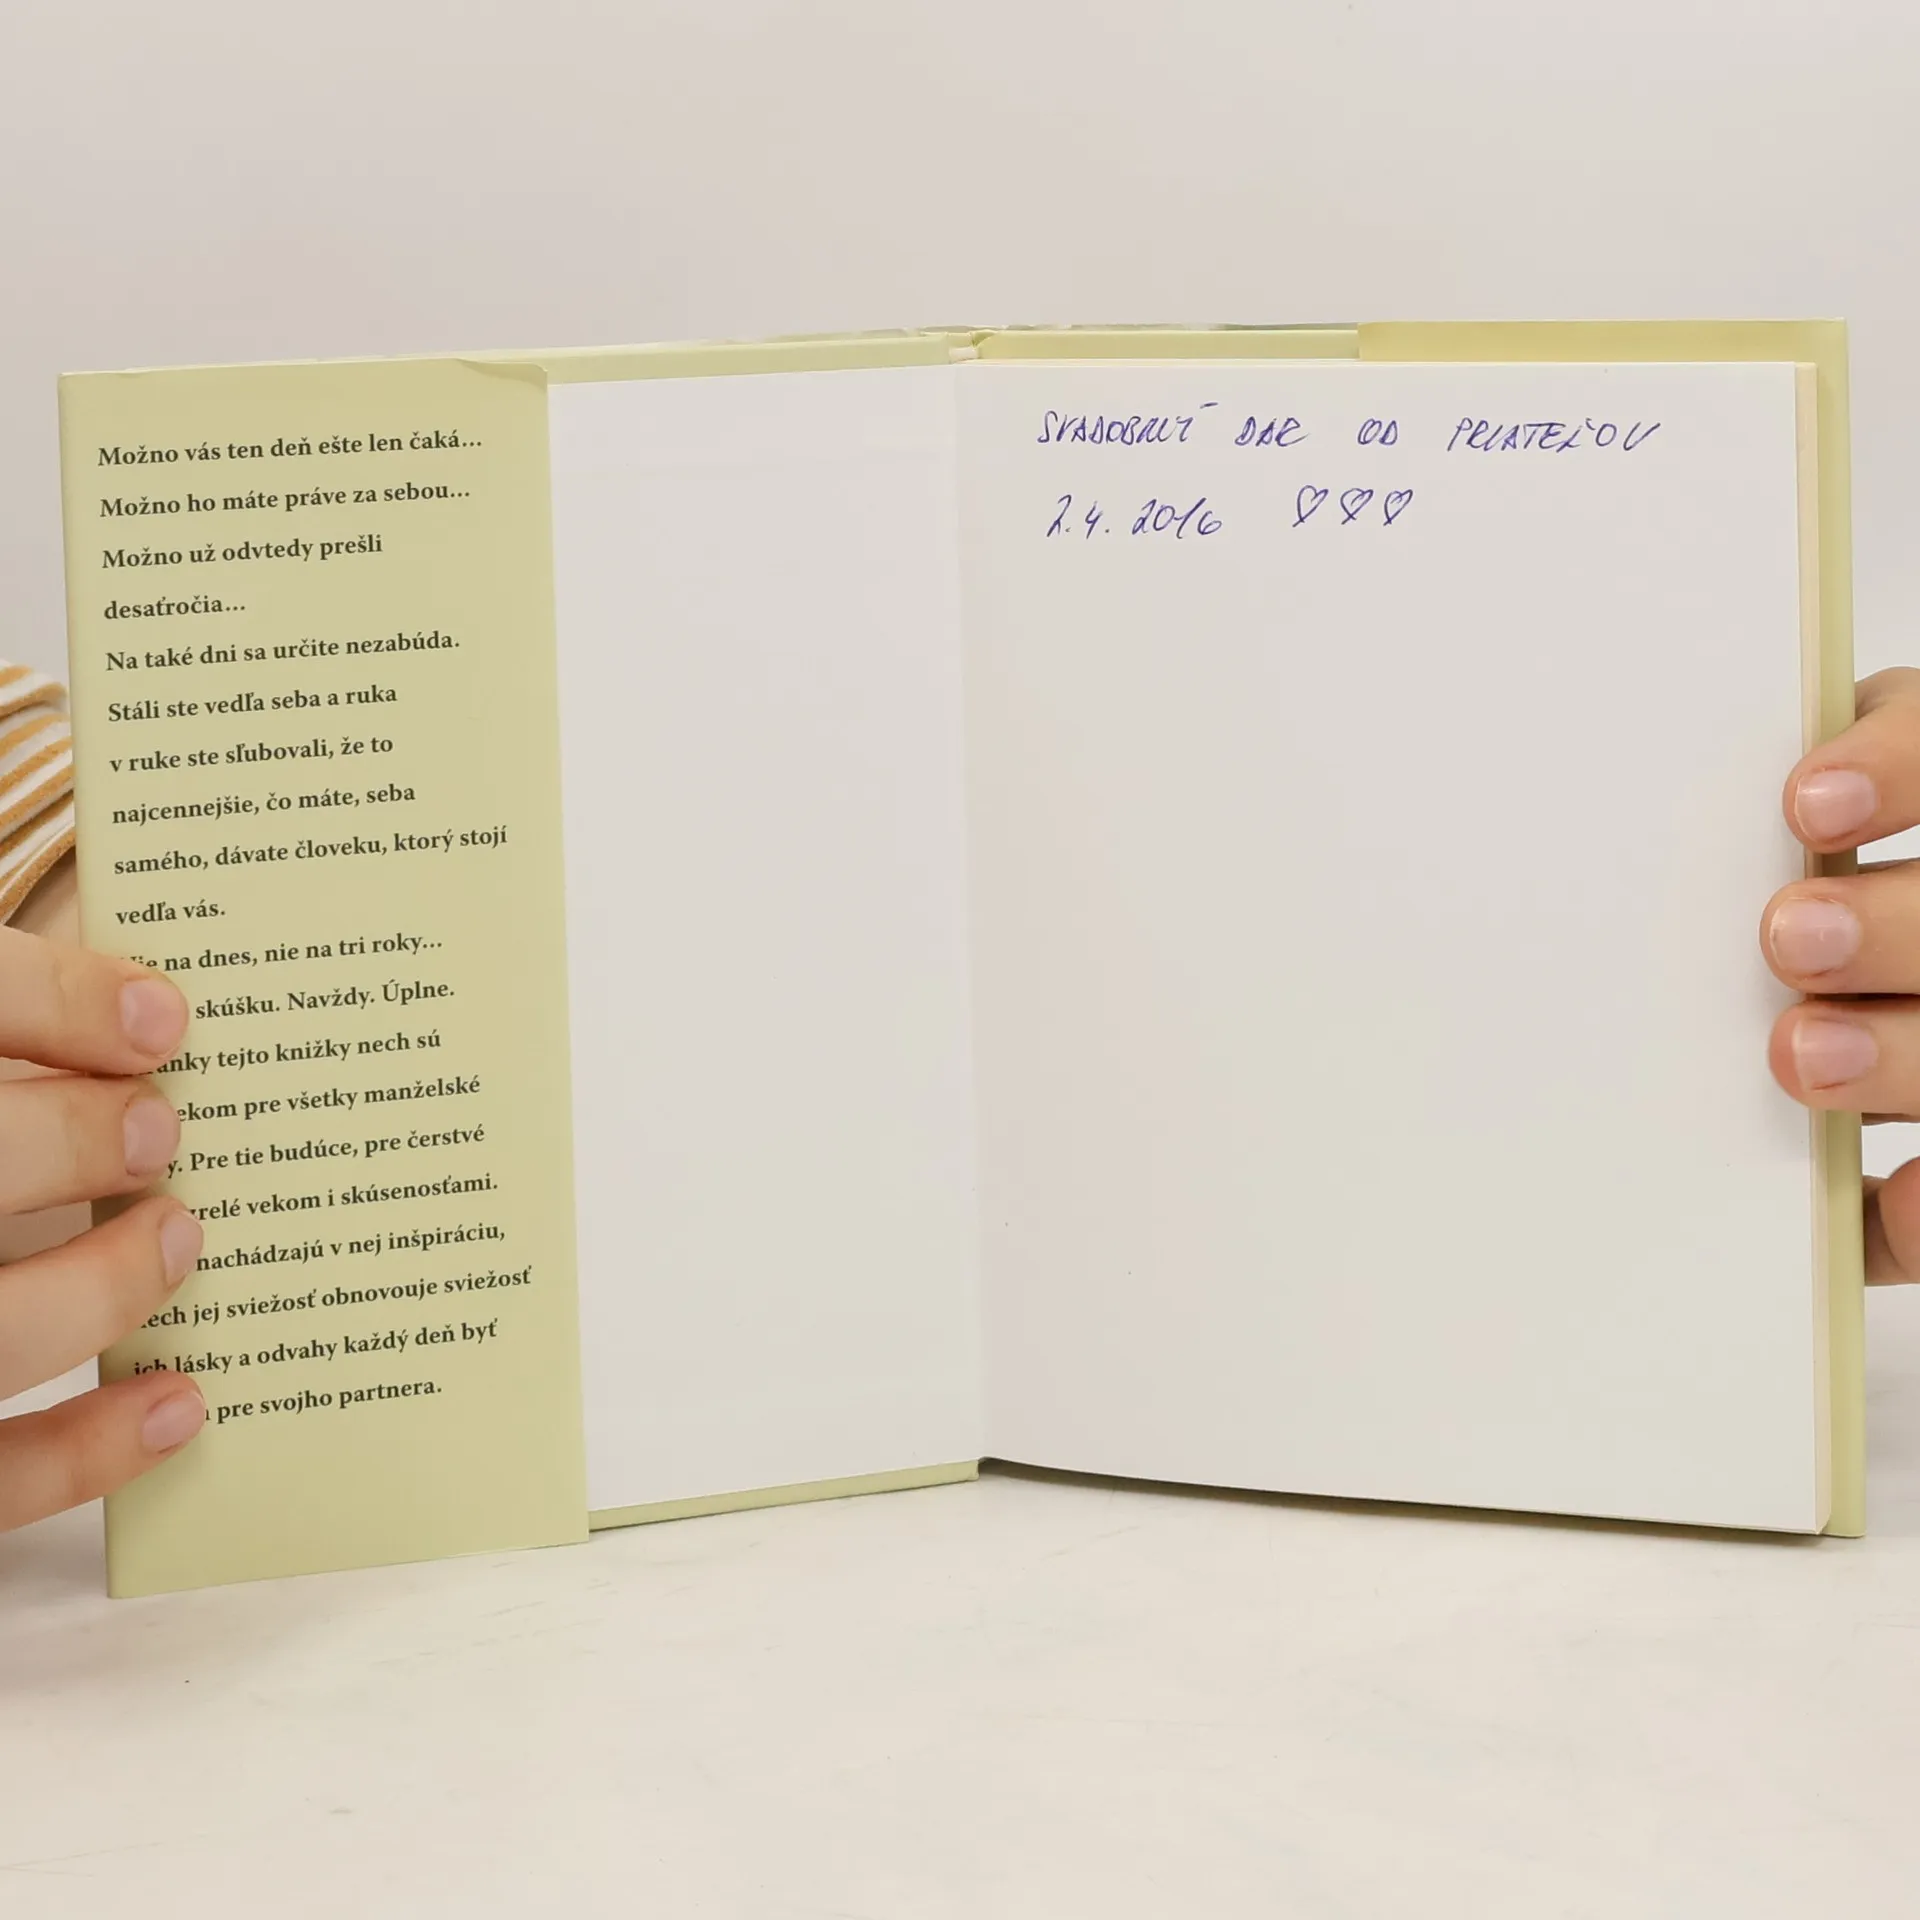 Možno vás ten deň ešte len čaká...
Možno ho máte práve za sebou...
Možno už odvtedy prešli
desaťročia...
Na také dni sa určite nezabúda.
Stáli ste vedľa seba a ruka
v ruke ste sľubovali, že to
najcennejšie, čo máte, seba
samého, dávate človeku, ktorý stojí
vedľa vás.
na dnes, nie na tri roky...
skúšku. Navždy. Úplne.
tejto knižky nech sú
pre všetky manželské
Pre tie budúce, pre čerstvé
vekom i skúsenosťami.
nachádzajú v nej inšpiráciu,
nech jej sviežosť obnovouje sviežosť
ich lásky a odvahy každý deň byť
pre svojho partnera.
SVADOBNÝ DAR OD PRIATEĽOV
2.4. 2016 ♡♡♡